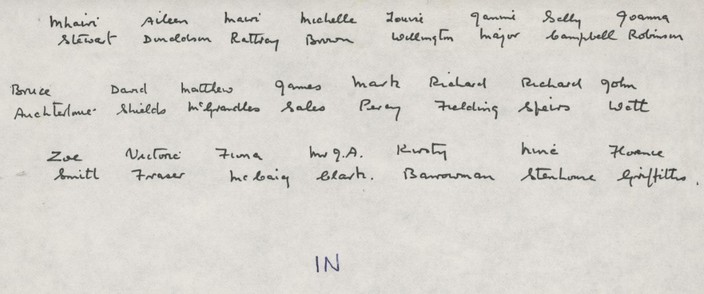 Mhairi Aileen Mairi Michelle Louise Jamie Sally Joanna
Stewart Donaldson Rattray Brown Wellington Major Campbell Robinson
Bruce David Matthew James Mark Richard Richard John
Auchterlonie Shields McGrandles Sales Percy Fielding Speirs Watt
Zoe Victoria Fiona Mr J.A. Kirsty Fiona
Smith Fraser McCaig Clark. Barrowman Stenhouse Griffiths.
IN